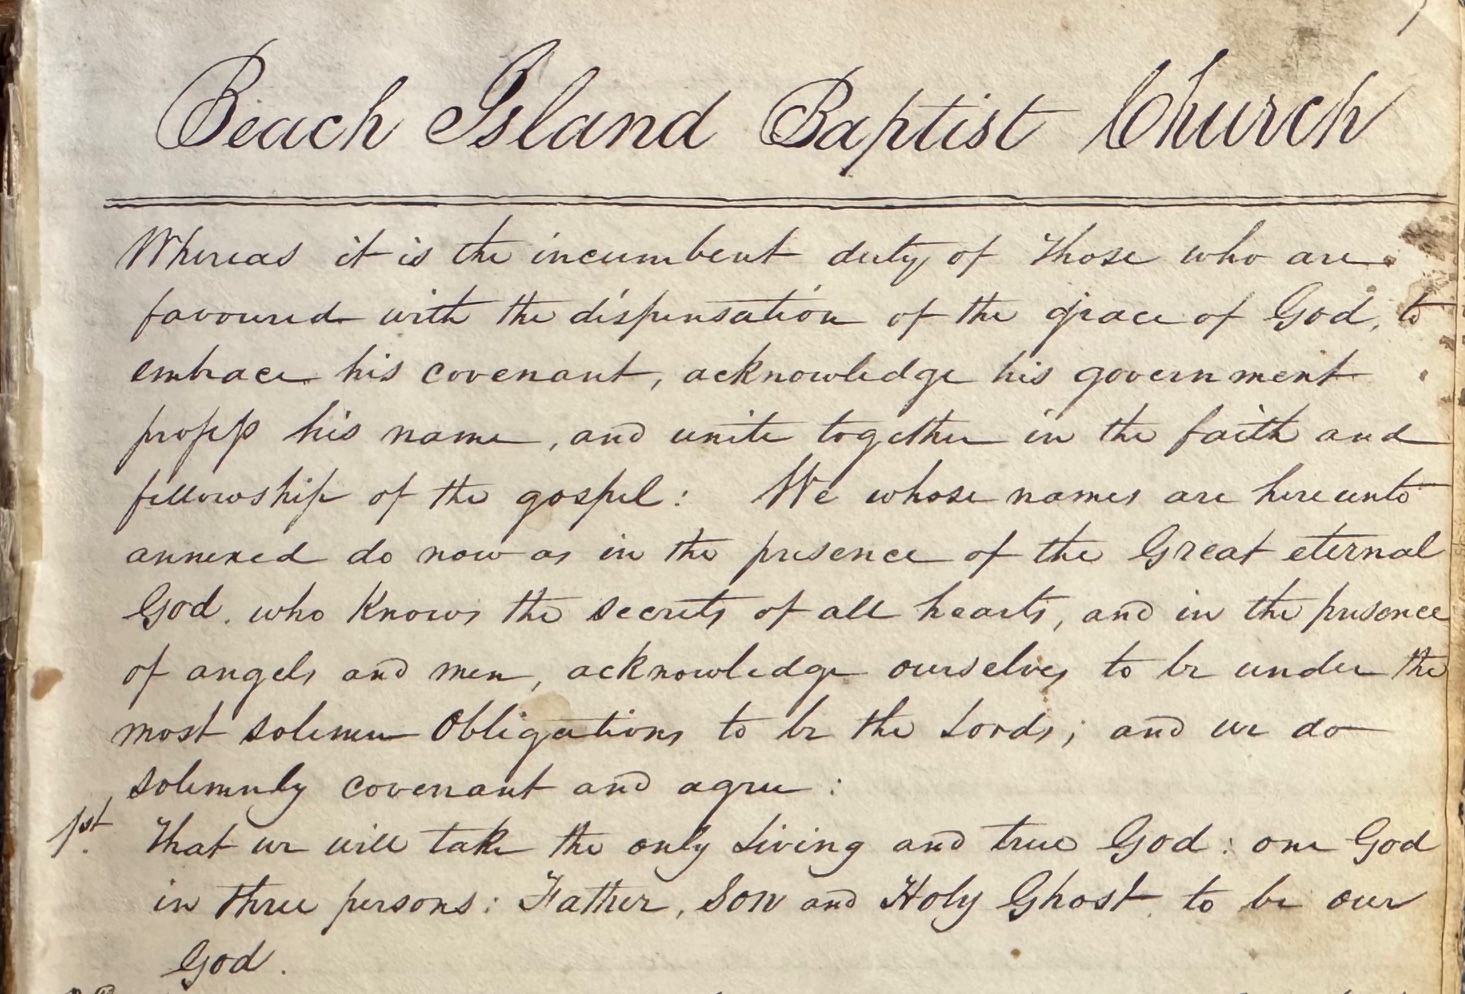 Beach Island Baptist Church
Whereas it is the incumbent duty of those who are
favoured with the dispensation of the grace of God, to
embrace his covenant, acknowledge his government
profess his name, and unite together in the faith and
fellowship of the gospel: We whose names are hereunto
annexed do now as in the presence of the Great eternal
God. who knows the secrets of all hearts, and in the presence
of angels and men, acknowledge ourselves to be under the
most solemn Obligations to be the Lords; and we do
solemnly covenant and agree:
1st. That we will take the only Living and true God: one God
in three persons: Father, Son and Holy Ghost to be our
God.